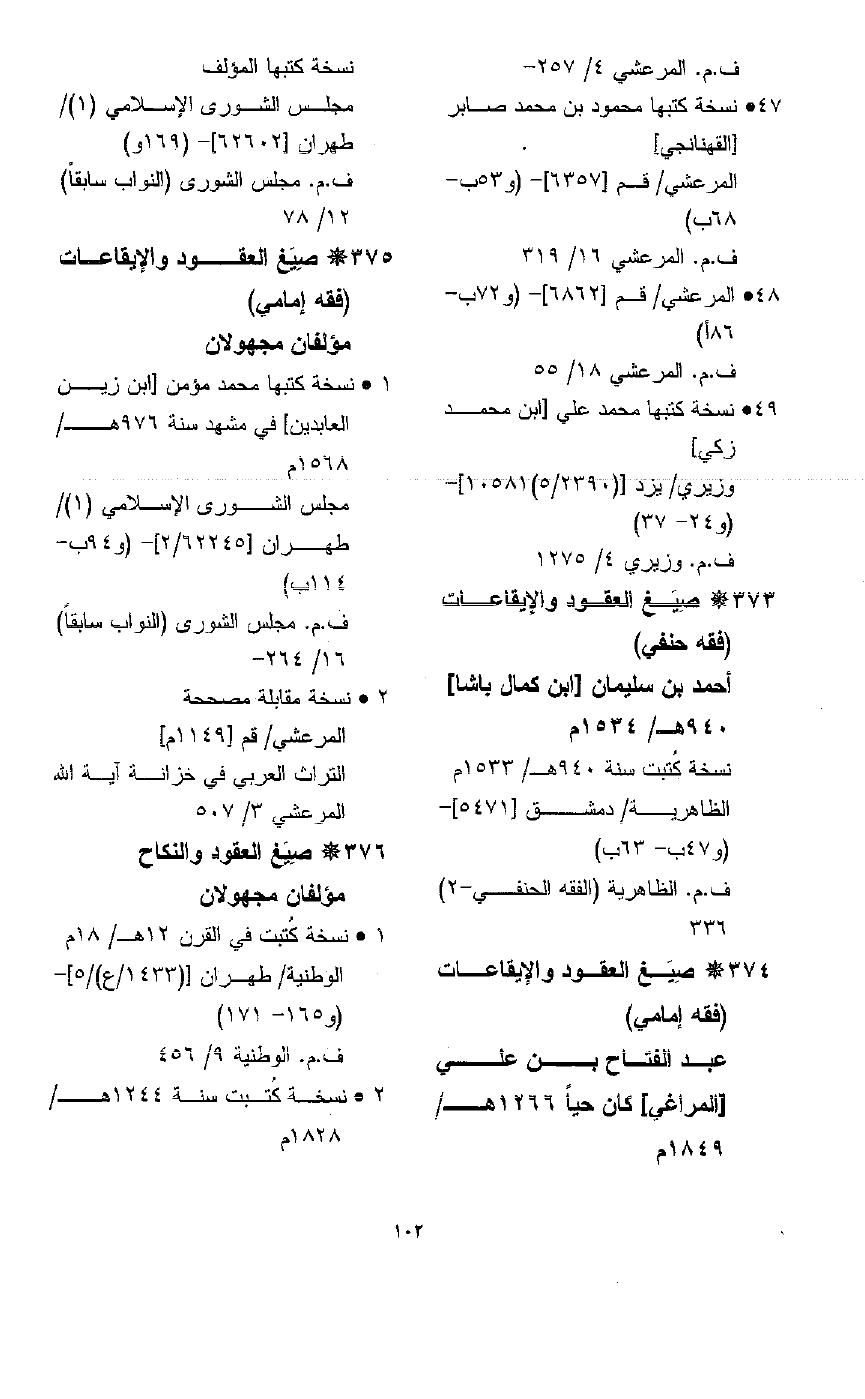 ف.م. المرعشي ٤/ ٢٥٧-
٤٧• نسخة كتبها محمود بن محمد صابر
[القهنانجي]
المرعشي/ قم [٦٣٥٧]- (و٥٣ب-
٦٨ب)
ف.م. المرعشي ١٦/ ٣١٩
٤٨• المرعشي/ قم [٦٨٦٢]- (و٧٢ب-
٨٦أ)
ف.م. المرعشي ١٨/ ٥٥
٤٩• نسخة كتبها محمد علي [ابن محمد
زكي]
وزيري/ يزد [(٥/٢٣٩٠)١٠٥٨١]-
(و٢٤- ٣٧)
ف.م. وزيري ٤/ ١٢٧٥
٣٧٣❋ صِيَغ العقود والإيقاعات
(فقه حنفي)
أحمد بن سليمان [ابن كمال باشا]
٩٤٠هـ/ ١٥٣٤م
نسخة كُتبت سنة ٩٤٠هـ/ ١٥٣٣م
الظاهرية/ دمشق [٥٤٧١]-
(و٤٧ب- ٦٣ب)
ف.م. الظاهرية (الفقه الحنفي-٢)
٣٣٦
٣٧٤❋ صِيَغ العقود والإيقاعات
(فقه إمامي)
عبد الفتاح بن علي
[المراغي] كان حياً ١٢٦٦هـ/
١٨٤٩م
نسخة كتبها المؤلف
مجلس الشورى الإسلامي (١)/
طهران [٦٢٦٠٢]- (١٦٩و)
ف.م. مجلس الشورى (النواب سابقاً)
١٢/ ٧٨
٣٧٥❋ صِيَغ العقود والإيقاعات
(فقه إمامي)
مؤلفان مجهولان
١ • نسخة كتبها محمد مؤمن [ابن زين
العابدين] في مشهد سنة ٩٧٦هـ/
١٥٦٨م
مجلس الشورى الإسلامي (١)/
طهران [٢/٦٢٢٤٥]- (و٩٤ب-
١١٤ب)
ف.م. مجلس الشورى (النواب سابقاً)
١٦/ ٢٦٤-
٢ • نسخة مقابلة مصححة
المرعشي/ قم [١١٤٩م]
التراث العربي في خزانة آية الله
المرعشي ٣/ ٥٠٧
٣٧٦❋ صِيَغ العقود والنكاح
مؤلفان مجهولان
١ • نسخة كُتبت في القرن ١٢هـ/ ١٨م
الوطنية/ طهران [(١٤٣٣/ع)/٥]-
(و١٦٥- ١٧١)
ف.م. الوطنية ٩/ ٤٥٦
٢ • نسخة كُتبت سنة ١٢٤٤هـ/
١٨٢٨م
١٠٢